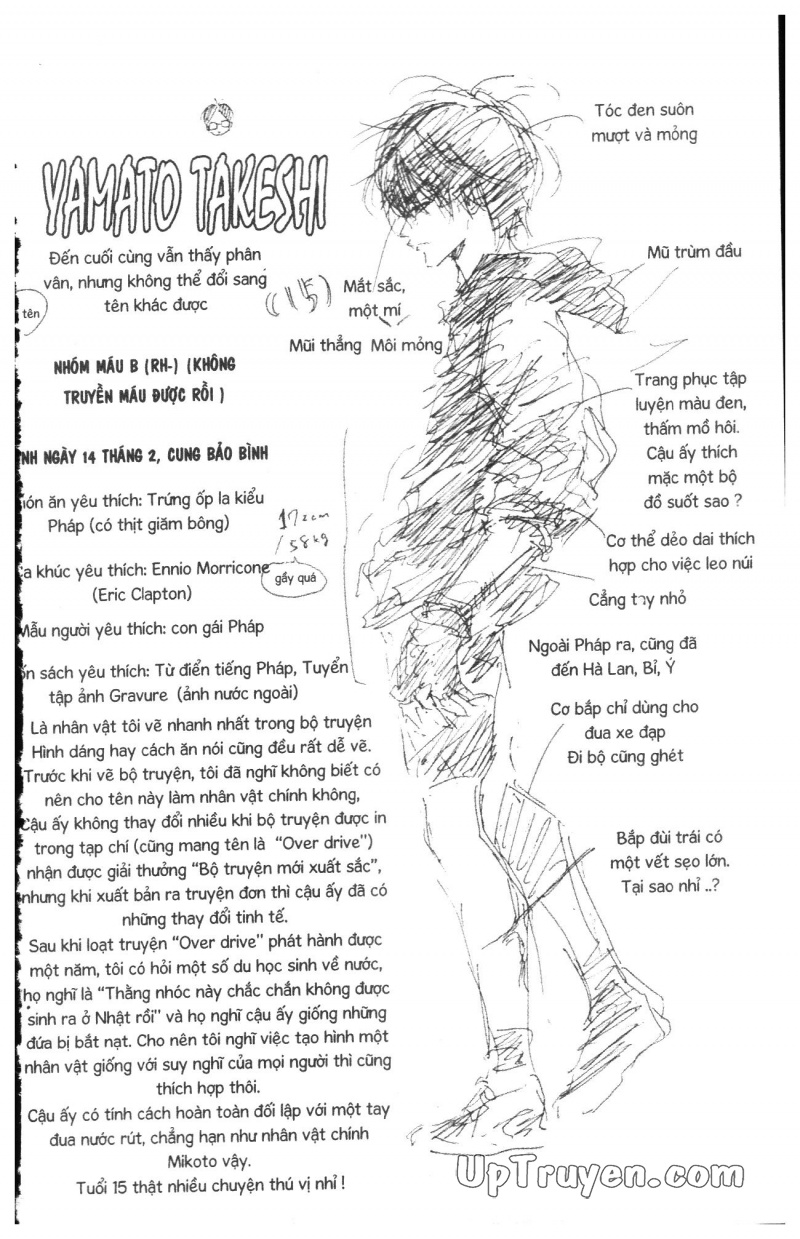 YAMATO TAKESHI
Đến cuối cùng vẫn thấy phân
vân, nhưng không thể đổi sang
tên khác được
tên
(15)
NHÓM MÁU B (RH-) (KHÔNG
TRUYỀN MÁU ĐƯỢC RỒI )
NH NGÀY 14 THÁNG 2, CUNG BẢO BÌNH
ón ăn yêu thích: Trứng ốp la kiểu
Pháp (có thịt giăm bông)
17 cm
/58kg
gầy quá
a khúc yêu thích: Ennio Morricone
(Eric Clapton)
Mẫu người yêu thích: con gái Pháp
ốn sách yêu thích: Từ điển tiếng Pháp, Tuyển
tập ảnh Gravure (ảnh nước ngoài)
Là nhân vật tôi vẽ nhanh nhất trong bộ truyện
Hình dáng hay cách ăn nói cũng đều rất dễ vẽ.
Trước khi vẽ bộ truyện, tôi đã nghĩ không biết có
nên cho tên này làm nhân vật chính không,
Cậu ấy không thay đổi nhiều khi bộ truyện được in
trong tạp chí (cũng mang tên là "Over drive")
nhận được giải thưởng "Bộ truyện mới xuất sắc",
nhưng khi xuất bản ra truyện đơn thì cậu ấy đã có
những thay đổi tinh tế.
Sau khi loạt truyện "Over drive" phát hành được
một năm, tôi có hỏi một số du học sinh về nước,
họ nghĩ là "Thằng nhóc này chắc chắn không được
sinh ra ở Nhật rồi" và họ nghĩ cậu ấy giống những
đứa bị bắt nạt. Cho nên tôi nghĩ việc tạo hình một
nhân vật giống với suy nghĩ của mọi người thì cũng
thích hợp thôi.
Cậu ấy có tính cách hoàn toàn đối lập với một tay
đua nước rút, chẳng hạn như nhân vật chính
Mikoto vậy.
Tuổi 15 thật nhiều chuyện thú vị nhỉ !
Tóc đen suôn
mượt và mỏng
Mũ trùm đầu
Mắt sắc,
một mí
Mũi thẳng Môi mỏng
Trang phục tập
luyện màu đen,
thấm mồ hôi.
Cậu ấy thích
mặc một bộ
đồ suốt sao ?
Cơ thể dẻo dai thích
hợp cho việc leo núi
Cẳng tay nhỏ
Ngoài Pháp ra, cũng đã
đến Hà Lan, Bỉ, Ý
Cơ bắp chỉ dùng cho
đua xe đạp
Đi bộ cũng ghét
Bắp đùi trái có
một vết sẹo lớn.
Tại sao nhỉ ..?
UpTruyen.com